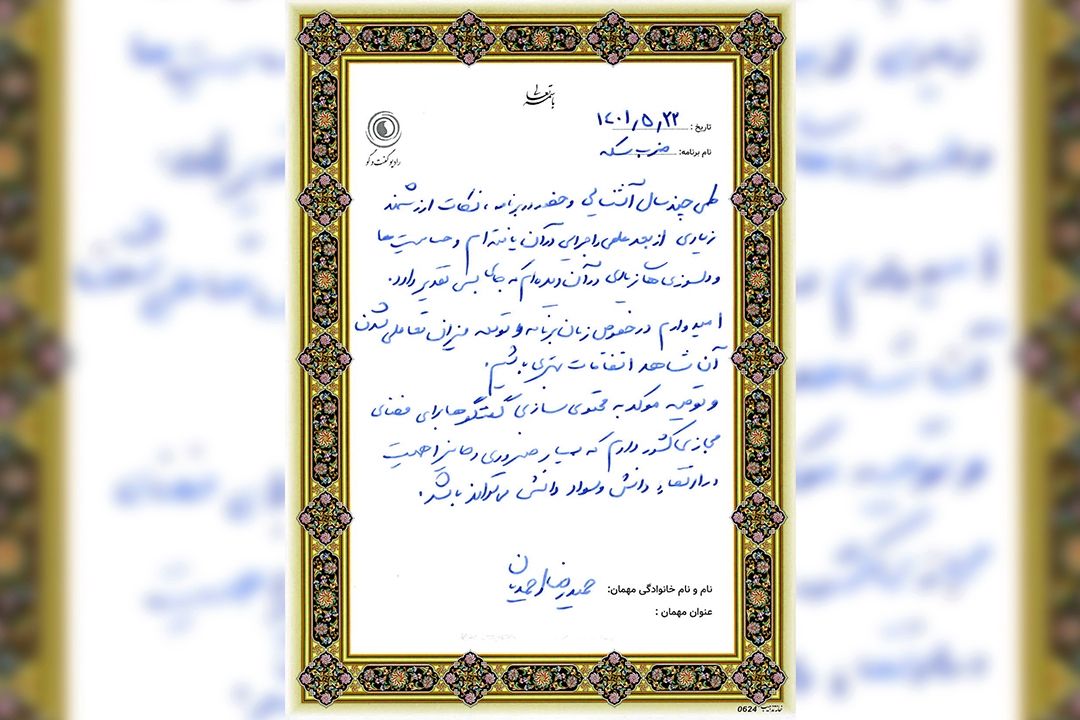 باسمه تعالی
تاریخ : ۱۴۰۱٫۵٫۲۲
نام برنامه: ضرب سکه
رادیو گفت و گو
طی چند سال آشنایی و حضور در برنامه، نکات ارزشمند
زیادی از بعد علمی و اجرایی در آن یافته‌ام و حساسیت‌ها
و دلسوزی‌های در آن دیده‌ام که جای بسی تقدیر دارد.
امیدوارم در خصوص زمان برنامه و توسعه میزان تعاملی شدن
آن شاهد اتفاقات بهتری باشیم.
و توصیه موکد به محتوی سازی گفتگوها برای فضای
مجازی کشور دارم که بسیار ضروری و حائز اهمیت
در ارتقاء دانش و سواد دانشی می‌تواند باشد.
نام و نام خانوادگی مهمان: حمیدرضا احمدیان
عنوان مهمان :
0624